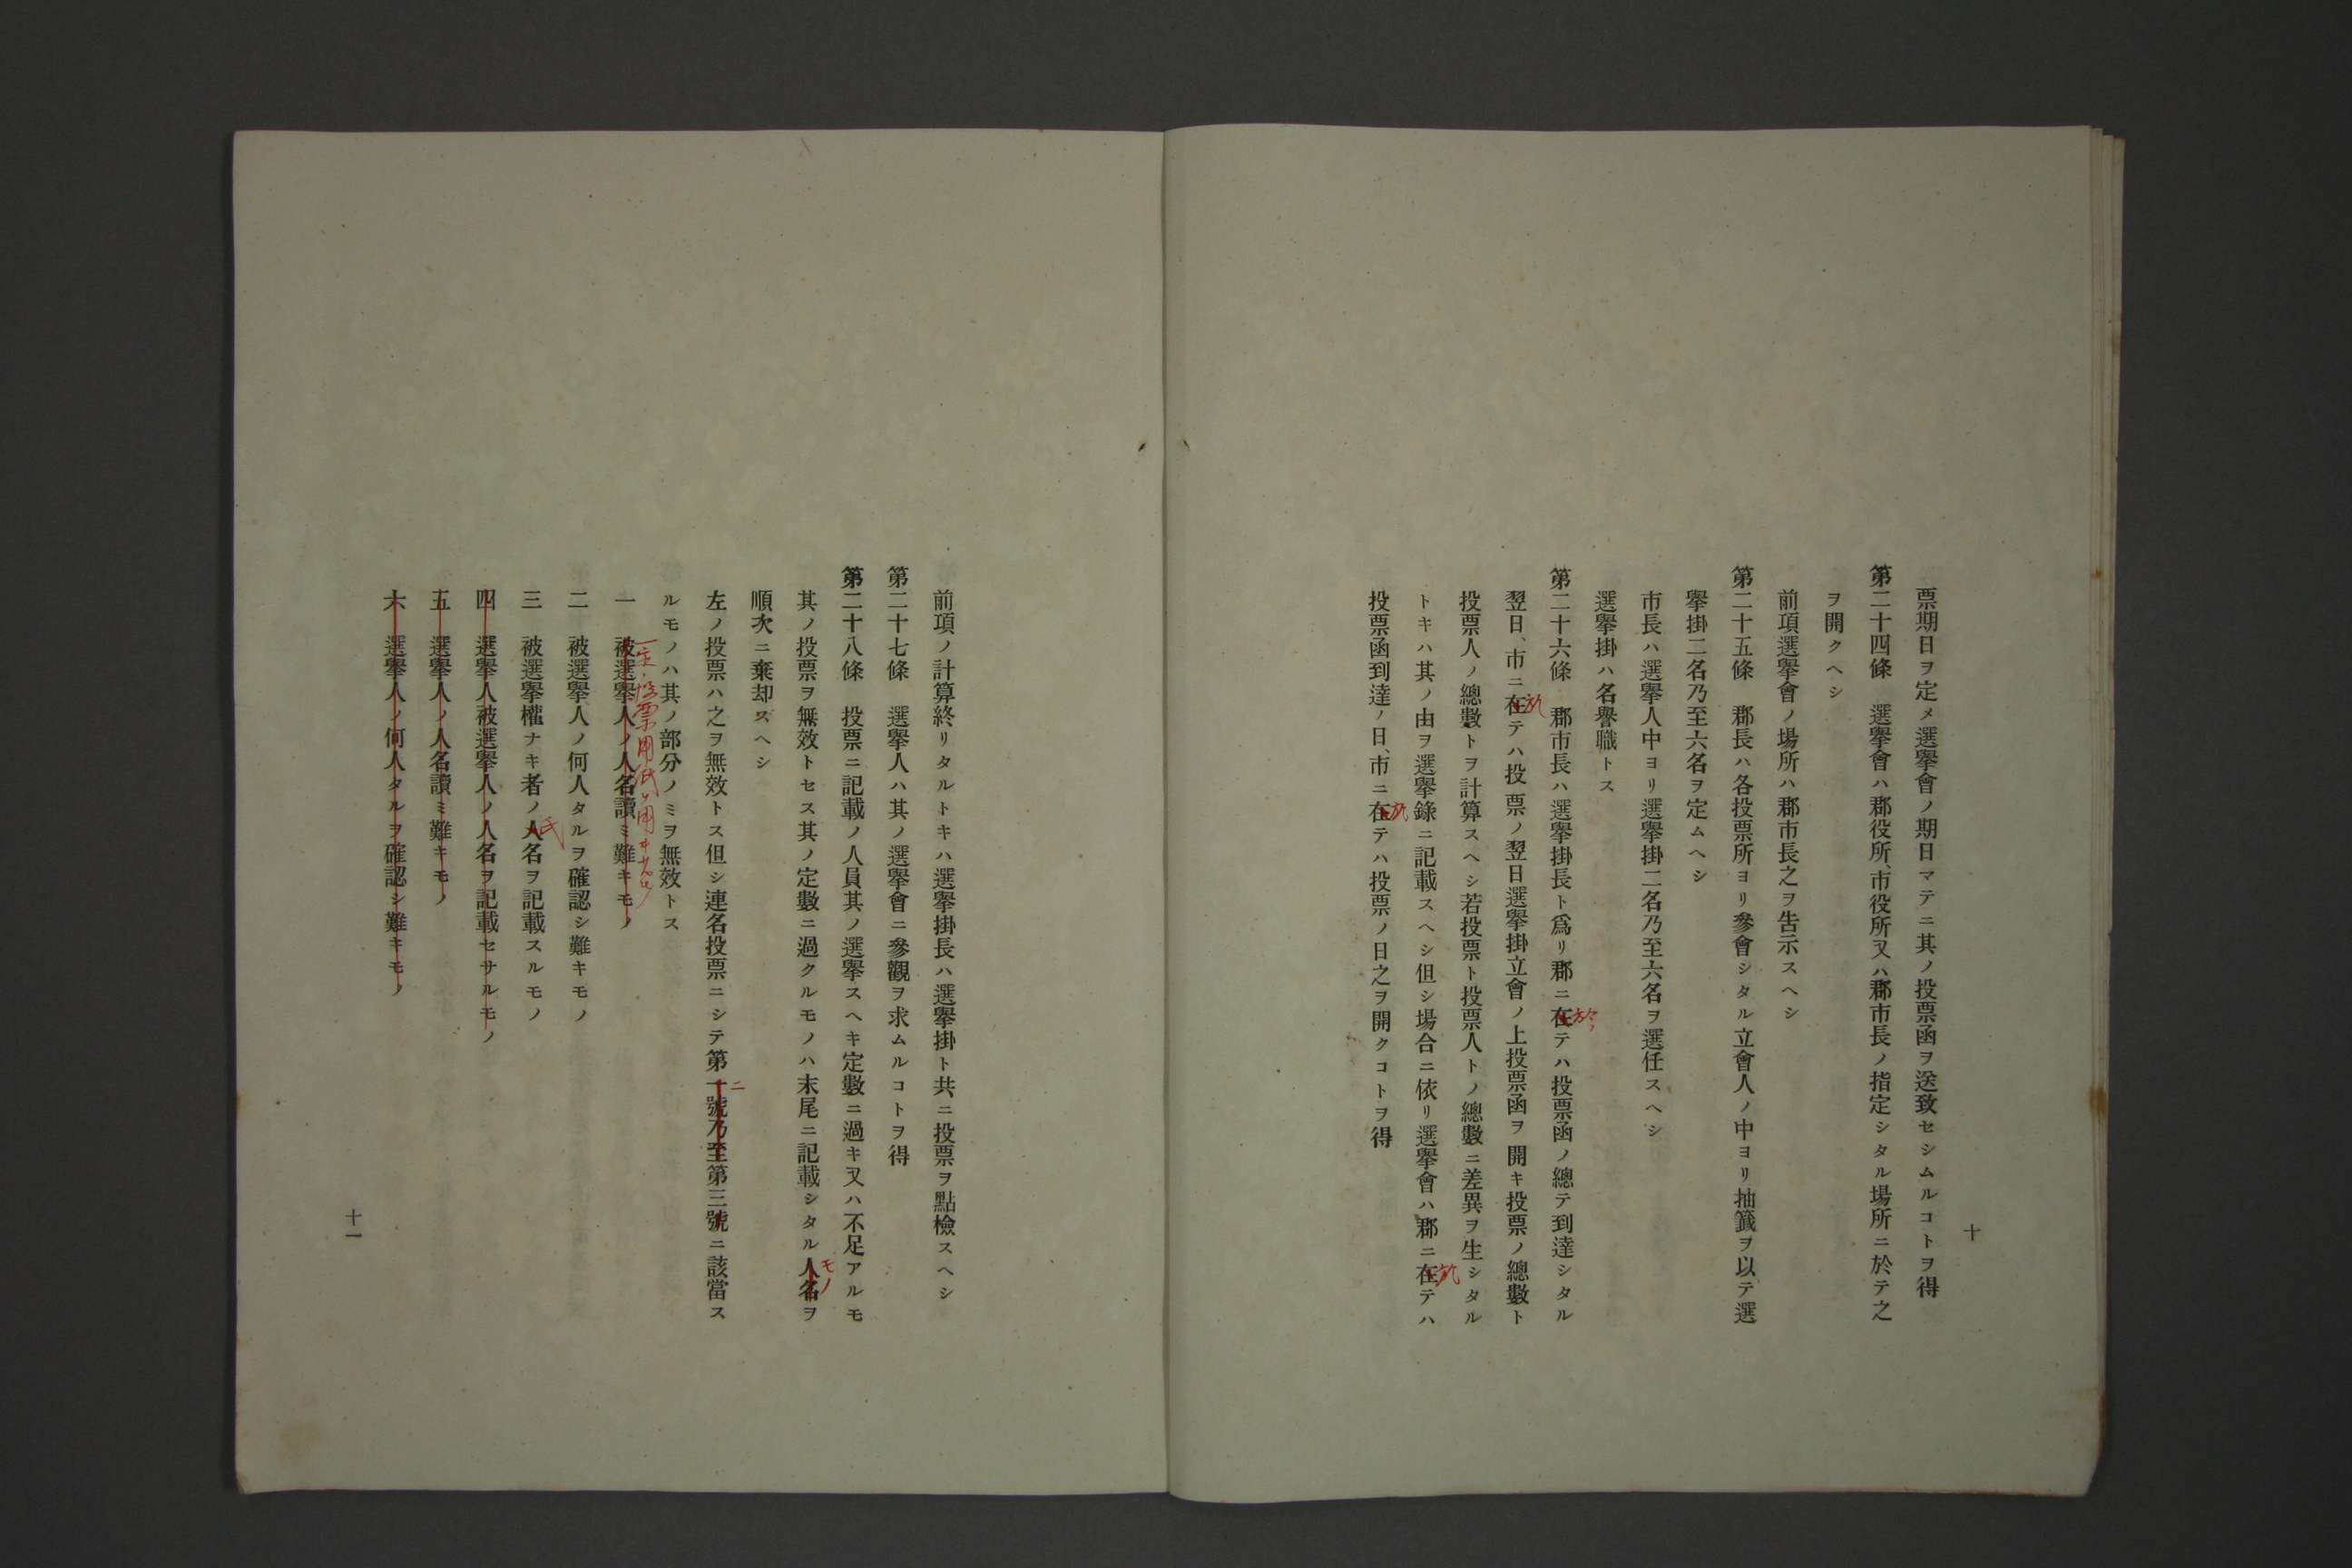 十
票期日ヲ定メ選擧會ノ期日マテニ其ノ投票函ヲ送致セシムルコトヲ得
第二十四條　選擧會ハ郡役所、市役所又ハ郡市長ノ指定シタル場所ニ於テ之
ヲ開クヘシ
前項選擧會ノ場所ハ郡市長之ヲ告示スヘシ
第二十五條　郡長ハ各投票所ヨリ參會シタル立會人ノ中ヨリ抽籤ヲ以テ選
擧掛二名乃至六名ヲ定ムヘシ
市長ハ選擧人中ヨリ選擧掛二名乃至六名ヲ選任スヘシ
選擧掛ハ名譽職トス
第二十六條　郡市長ハ選擧掛長ト爲リ郡ニ在テハ投票函ノ總テ到達シタル
於
翌日、市ニ在テハ投票ノ翌日選擧掛立會ノ上投票函ヲ開キ投票ノ總數ト
於
投票人ノ總數トヲ計算スヘシ若投票ト投票人トノ總數ニ差異ヲ生シタル
トキハ其ノ由ヲ選擧錄ニ記載スヘシ但シ場合ニ依リ選擧會ハ郡ニ在テハ
於
投票函到達ノ日、市ニ在テハ投票ノ日之ヲ開クコトヲ得
於
前項ノ計算終リタルトキハ選擧掛長ハ選擧掛ト共ニ投票ヲ點檢スヘシ
第二十七條　選擧人ハ其ノ選擧會ニ參觀ヲ求ムルコトヲ得
第二十八條　投票ニ記載ノ人員其ノ選擧スヘキ定數ニ過キ又ハ不足アルモ
其ノ投票ヲ無效トセス其ノ定數ニ過クルモノハ末尾ニ記載シタル人名ヲ
モノ
順次ニ棄却スヘシ
左ノ投票ハ之ヲ無效トス但シ連名投票ニシテ第一號乃至第三號ニ該當ス
二
ルモノハ其ノ部分ノミヲ無效トス
一　被選擧人ノ人名讀ミ難キモノ
投票用紙ヲ用ヰサルモノ
二　被選擧人ノ何人タルヲ確認シ難キモノ
三　被選擧權ナキ者ノ人名ヲ記載スルモノ
氏
四　選擧人被選擧人ノ人名ヲ記載セサルモノ
五　選擧人ノ人名讀ミ難キモノ
六　選擧人ノ何人タルヲ確認シ難キモノ
十一